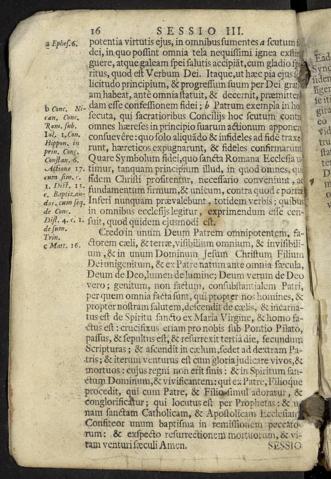 16 SESSIO III.
a Ephes. 6.
potentia virtutis ejus, in omnibus sumentes a scutum fi-
dei, in quo possint omnia tela nequissimi ignea extin-
guere, atque galeam spei salutis accipiant, cum gladio spi-
ritus, quod est Verbum Dei. Itaque, ut hæc pia ejus sol-
licitudo principium, & progressum suum per Dei grati-
am habeat, ante omnia statuit, & decernit, præmitten-
dam esse confessionem fidei; b Patrum exempla in hoc
secuta, qui sacratioribus Conciliis hoc scutum contra
omnes hæreses in principio suarum actionum apponere
consuevêre: quo solo aliquando & infideles ad fidem traxe-
runt, hæreticos expugnarunt, & fideles confirmarunt.
Quare Symbolum fidei, quo sancta Romana Ecclesia u-
titur, tanquam principium illud, in quo omnes, qui
fidem Christi profitentur, necessario conveniunt, ac
fundamentum firmum, & unicum, contra quod c portæ
Inferi nunquam prævalebunt, totidem verbis, quibus
in omnibus ecclesiis legitur, exprimendum esse cen-
suit, quod quidem ejusmodi est.
b Conc. Ni-
cæn. Conc.
Rom. sub.
Jul. 1. Con.
Hippon. in
prin. Conc.
Constan. 6.
Actione 17.
cum sim. c.
1. Dist. 15.
c. Baptizan-
dos. cum seq.
de Conc.
Dist. 4. c. 1.
de sum.
Trin.
c Matt. 16.
Credo in unum Deum Patrem omnipotentem, fa-
ctorem cæli, & terræ, visibilium omnium, & invisibili-
um, & in unum Dominum Jesum Christum Filium
Dei unigenitum, & ex Patre natum ante omnia sæcula,
Deum de Deo, lumen de lumine, Deum verum de Deo
vero; genitum, non factum, consubstantialem Patri,
per quem omnia facta sunt, qui propter nos homines, &
propter nostram salutem, descendit de cælis, & incarna-
tus est de Spiritu sancto ex Maria Virgine, & homo fa-
ctus est: crucifixus etiam pro nobis sub Pontio Pilato,
passus, & sepultus est, & resurrexit tertia die, secundum
Scripturas; & ascendit in cælum, sedet ad dextram Pa-
tris; & iterum venturus est cum gloria judicare vivos, &
mortuos: cujus regni non erit finis: & in Spiritum san-
ctum Dominum, & vivificantem: qui ex Patre, Filioque
procedit, qui cum Patre, & Filio simul adoratur, &
conglorificatur; qui locutus est per Prophetas: & u-
nam sanctam Catholicam, & Apostolicam Ecclesiam.
Confiteor unum baptisma in remissionem peccato-
rum: & exspecto resurrectionem mortuorum, & vi-
tam venturi sæculi Amen.
SESSIO